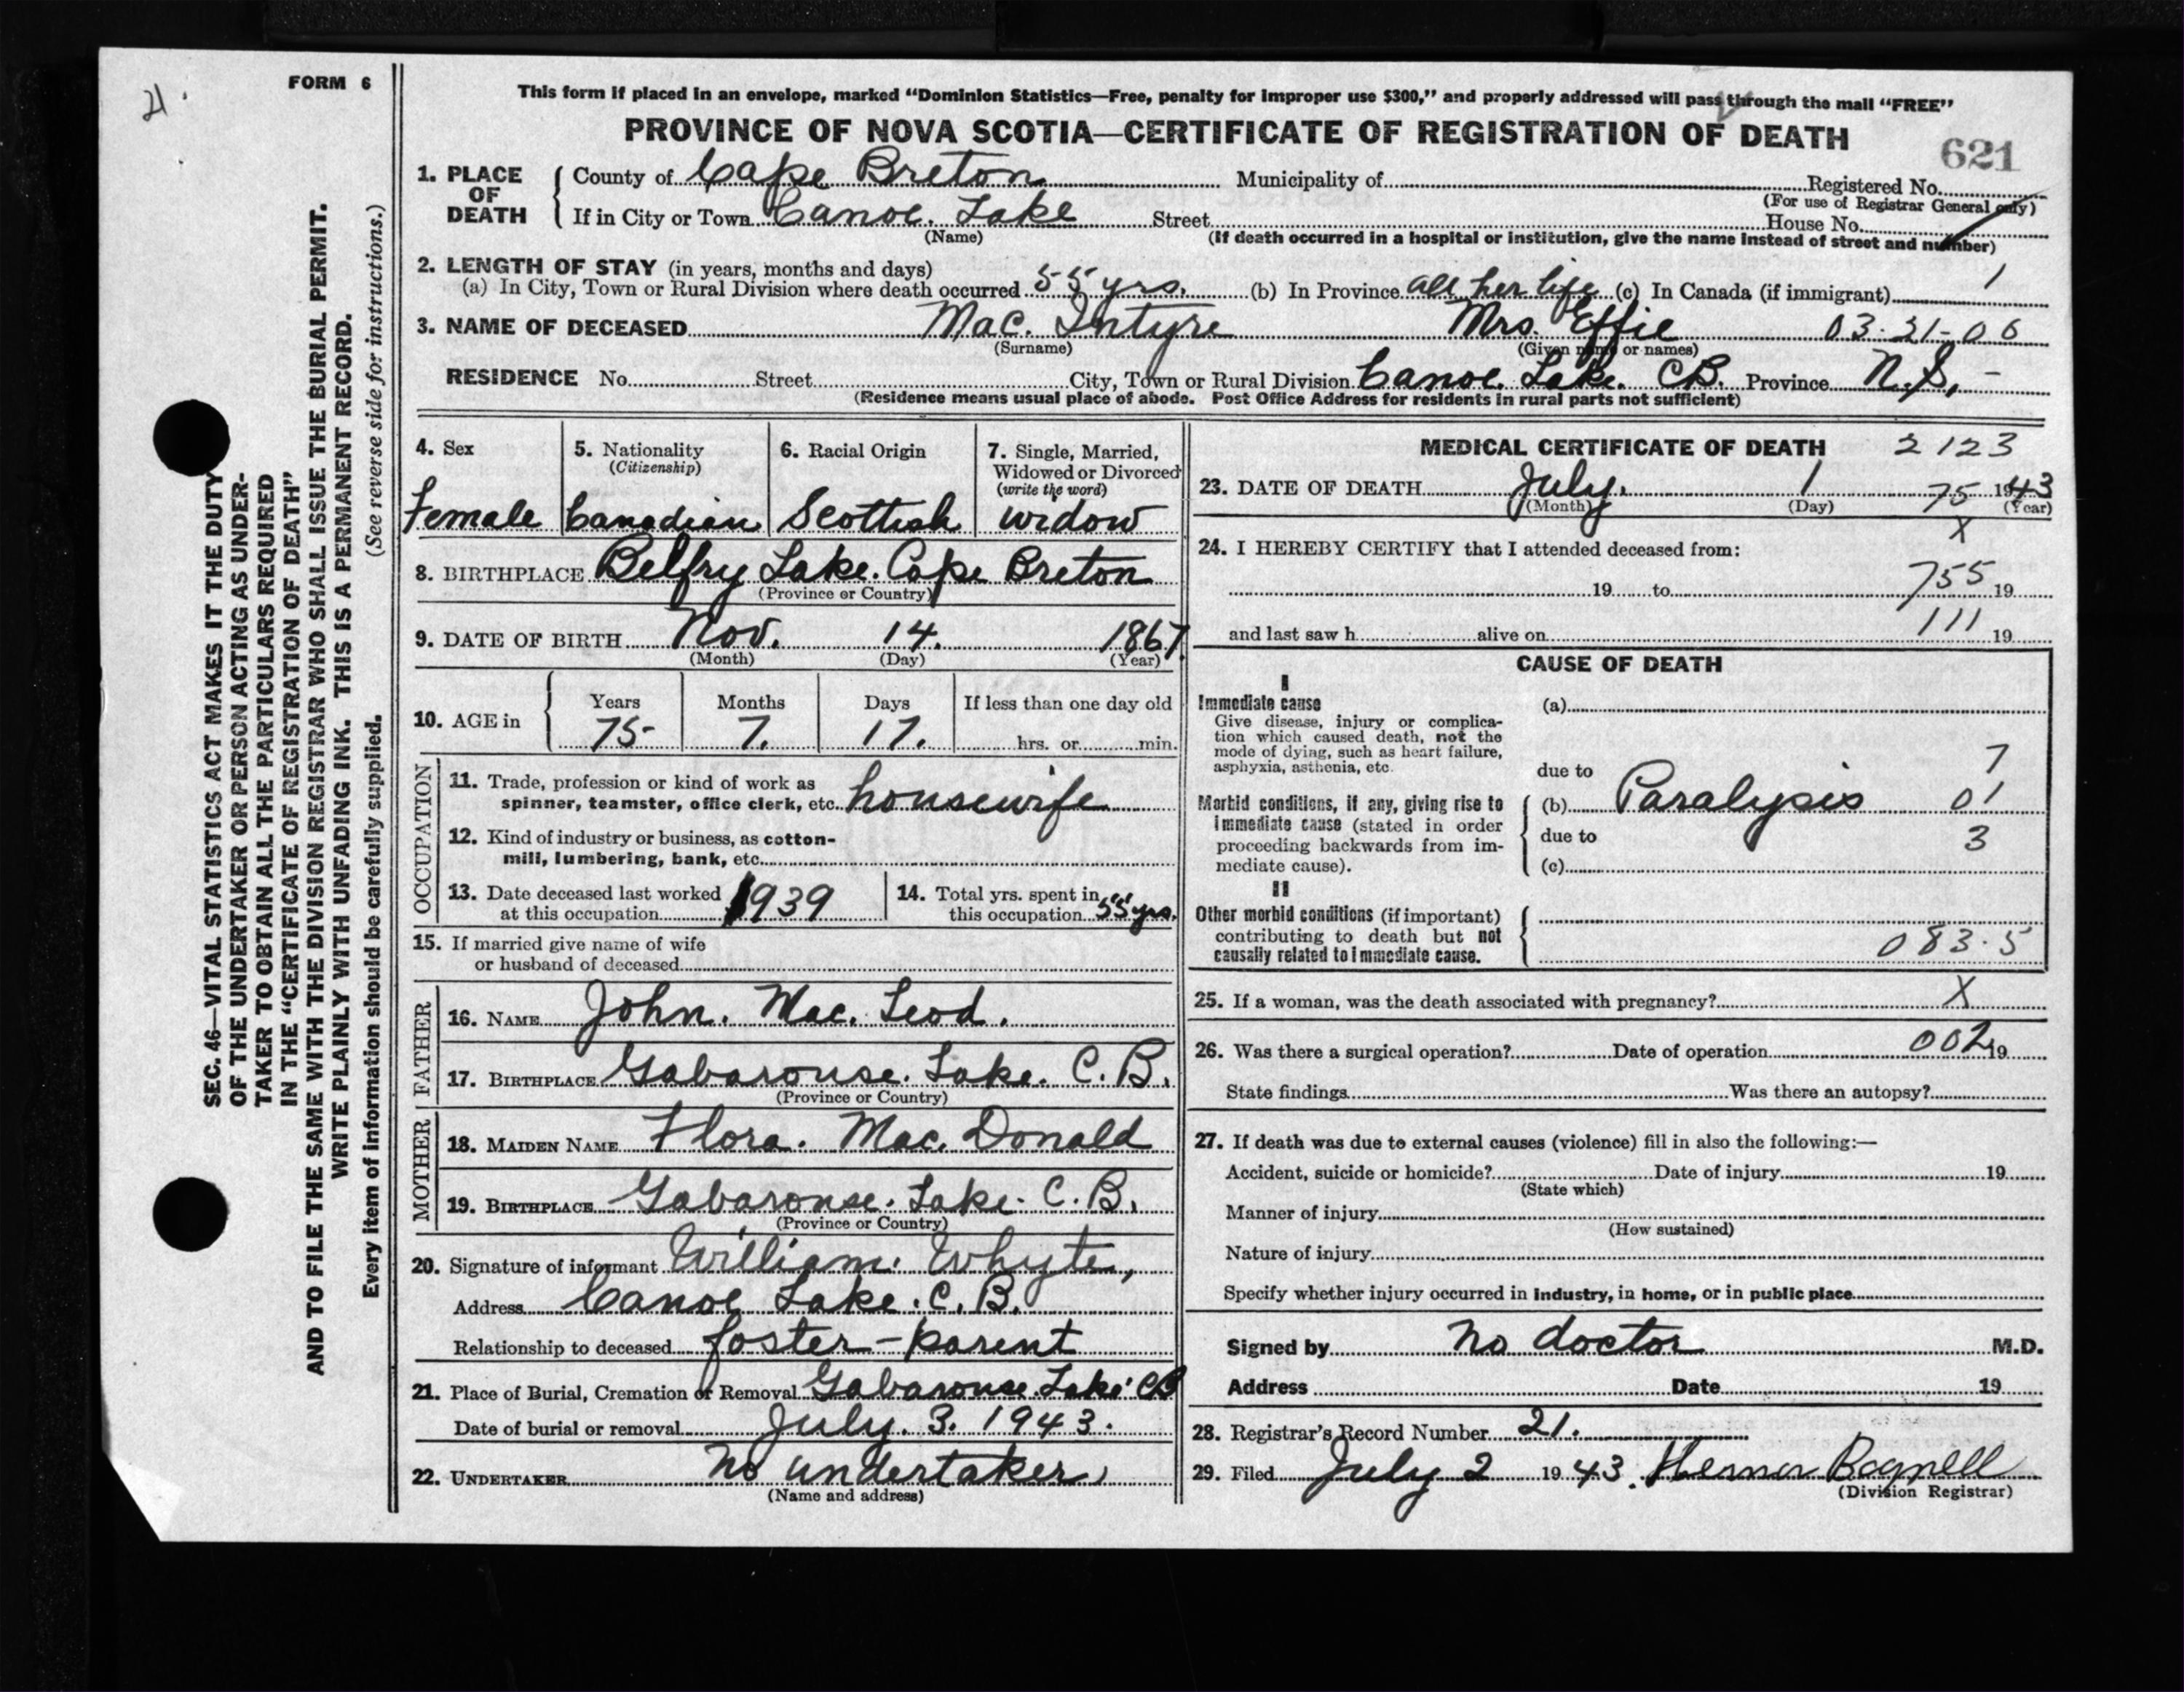 21.
FORM 6
This form if placed in an envelope, marked “Dominion Statistics—Free, penalty for improper use $300,” and properly addressed will pass through the mail “FREE”
PROVINCE OF NOVA SCOTIA—CERTIFICATE OF REGISTRATION OF DEATH
621
1. PLACE OF DEATH { County of Cape Breton Municipality of Registered No.
(For use of Registrar General only)
If in City or Town Canoe. Lake Street House No.
(Name) (If death occurred in a hospital or institution, give the name instead of street and number)
2. LENGTH OF STAY (in years, months and days)
(a) In City, Town or Rural Division where death occurred 55 yrs. (b) In Province all her life (c) In Canada (if immigrant) 1
3. NAME OF DECEASED Mac. Intyre Mrs. Effie 03-21-06
(Surname) (Given name or names)
RESIDENCE No. Street City, Town or Rural Division Canoe. Lake. CB. Province N.S. -
(Residence means usual place of abode. Post Office Address for residents in rural parts not sufficient)
4. Sex
Female
5. Nationality
(Citizenship)
Canadian
6. Racial Origin
Scottish
7. Single, Married,
Widowed or Divorced
(write the word)
widow
8. BIRTHPLACE Belfry Lake. Cape Breton
(Province or Country)
9. DATE OF BIRTH Nov. 14. 1867.
(Month) (Day) (Year)
10. AGE in { Years Months Days If less than one day old
75- 7. 17. hrs. or min.
OCCUPATION
11. Trade, profession or kind of work as
spinner, teamster, office clerk, etc. housewife
12. Kind of industry or business, as cotton-
mill, lumbering, bank, etc.
13. Date deceased last worked
at this occupation 1939
14. Total yrs. spent in
this occupation 55 yrs.
15. If married give name of wife
or husband of deceased
FATHER
16. NAME John. Mac. Leod.
17. BIRTHPLACE Gabarouse. Lake. C. B.
(Province or Country)
MOTHER
18. MAIDEN NAME Flora. Mac. Donald
19. BIRTHPLACE Gabarouse. Lake. C. B.
(Province or Country)
20. Signature of informant William. Whyte,
Address Canoe Lake. C. B.
Relationship to deceased foster-parent
21. Place of Burial, Cremation or Removal Gabarouse. Lake CB
Date of burial or removal July. 3. 1943.
22. UNDERTAKER No undertaker
(Name and address)
MEDICAL CERTIFICATE OF DEATH 2123
23. DATE OF DEATH July. 1 75 1943
(Month) (Day) (Year)
X
24. I HEREBY CERTIFY that I attended deceased from:
19 to 755 19
and last saw h alive on 111 19
CAUSE OF DEATH
I
Immediate cause (a)
Give disease, injury or complica-
tion which caused death, not the
mode of dying, such as heart failure,
asphyxia, asthenia, etc.
due to 7
Morbid conditions, if any, giving rise to
immediate cause (stated in order
proceeding backwards from im-
mediate cause).
(b) Paralysis 01
due to 3
(c)
II
Other morbid conditions (if important)
contributing to death but not
causally related to immediate cause.
083.5
25. If a woman, was the death associated with pregnancy? X
26. Was there a surgical operation? Date of operation 002 19
State findings Was there an autopsy?
27. If death was due to external causes (violence) fill in also the following:—
Accident, suicide or homicide? Date of injury 19
(State which)
Manner of injury
(How sustained)
Nature of injury
Specify whether injury occurred in industry, in home, or in public place
Signed by No doctor M.D.
Address Date 19
28. Registrar's Record Number 21.
29. Filed July 2 1943. Bagnell
(Division Registrar)
SEC. 46—VITAL STATISTICS ACT MAKES IT THE DUTY
OF THE UNDERTAKER OR PERSON ACTING AS UNDER-
TAKER TO OBTAIN ALL THE PARTICULARS REQUIRED
IN THE “CERTIFICATE OF REGISTRATION OF DEATH”
AND TO FILE THE SAME WITH THE DIVISION REGISTRAR WHO SHALL ISSUE THE BURIAL PERMIT.
WRITE PLAINLY WITH UNFADING INK. THIS IS A PERMANENT RECORD.
Every item of information should be carefully supplied. (See reverse side for instructions.)